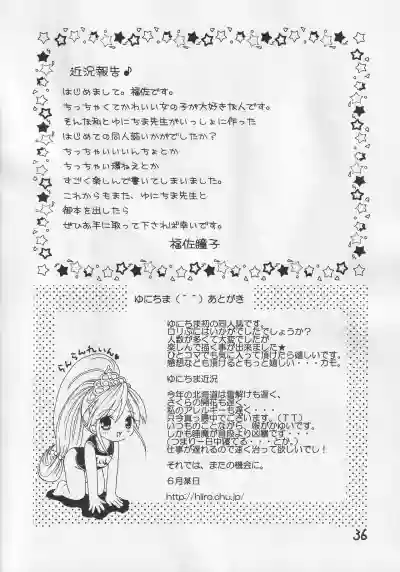 近況報告♪
はじめまして。福佐です。
ちっちゃくてかわいい女の子が大好きなんです。
そんな私とゆにちま先生がいっしょに作った
はじめての同人誌いかがでしたか?
ちっちゃいいいんちょとか
ちっちゃい澪ねえとか
すごく楽しんで書いてしまいました。
これからもまた、ゆにちま先生と
御本を出したら
ぜひお手に取って下されば幸いです。
福佐瞳子
ゆにちま(^^)あとがき
らんらんれいん♥
ゆにちま初の同人誌です。
ロリぷにはいかがでしたでしょうか?
人数が多くて大変でしたが
楽しんで描く事が出来ました★
ひとコマでも気に入って頂けたら嬉しいです。
感想なども頂けるともっと嬉しい・・・カモ。
ゆにちま近況
今年の北海道は雪解けも遅く、
さくらの開花も遅く
私のアレルギーも遅く・・・
只今真っ最中でございます。(TT)
いつものことながら、眼がかゆいです。
しかも睡魔が普段より凶暴です・・・
(つまり一日中寝てる・・・とか。)
仕事が遅れるので速く治って欲しいでし!
それでは、またの機会に。
6月某日
http://hiiro.chu.jp/
36